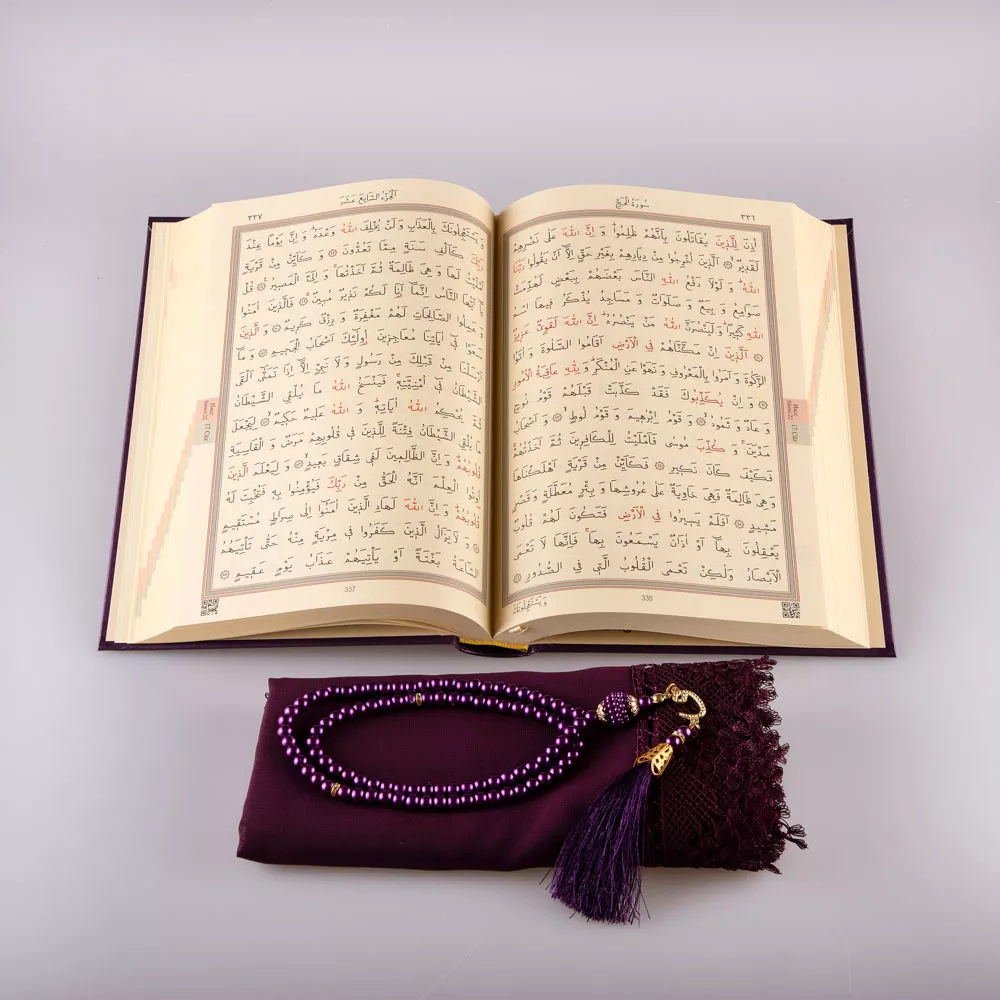 سُورَةُ الْحَجِّ ٣٣٦
اُذِنَ لِلَّذٖينَ يُقَاتَلُونَ بِاَنَّهُمْ ظُلِمُوا وَ اِنَّ اللّٰهَ عَلٰى نَصْرِهِمْ
لَقَدٖيرٌ اَلَّذٖينَ اُخْرِجُوا مِنْ دِيَارِهِمْ بِغَيْرِ حَقٍّ اِلَّٓا اَنْ يَقُولُوا رَبُّنَا
اللّٰهُ وَ لَوْلَا دَفْعُ اللّٰهِ النَّاسَ بَعْضَهُمْ بِبَعْضٍ لَهُدِّمَتْ
صَوَامِعُ وَ بِيَعٌ وَ صَلَوَاتٌ وَ مَسَاجِدُ يُذْكَرُ فٖيهَا اسْمُ
اللّٰهِ كَثٖيرًا وَ لَيَنْصُرَنَّ اللّٰهُ مَنْ يَنْصُرُهُ اِنَّ اللّٰهَ لَقَوِىٌّ عَزٖيزٌ
اَلَّذٖينَ اِنْ مَكَّنَّاهُمْ فِى الْاَرْضِ اَقَامُوا الصَّلٰوةَ وَ اٰتَوُا
الزَّكٰوةَ وَ اَمَرُوا بِالْمَعْرُوفِ وَ نَهَوْا عَنِ الْمُنْكَرِ وَ لِلّٰهِ عَاقِبَةُ الْاُمُورِ
وَ اِنْ يُكَذِّبُوكَ فَقَدْ كَذَّبَتْ قَبْلَهُمْ قَوْمُ نُوحٍ
وَ عَادٌ وَ ثَمُودُ وَ قَوْمُ اِبْرٰهٖيمَ وَ قَوْمُ لُوطٍ وَ اَصْحَابُ
مَدْيَنَ وَ كُذِّبَ مُوسٰى فَاَمْلَيْتُ لِلْكَافِرٖينَ ثُمَّ اَخَذْتُهُمْ
فَكَيْفَ كَانَ نَكٖيرِ فَكَاَيِّنْ مِنْ قَرْيَةٍ اَهْلَكْنَاهَا
وَ هِىَ ظَالِمَةٌ فَهِىَ خَاوِيَةٌ عَلٰى عُرُوشِهَا وَ بِئْرٍ مُعَطَّلَةٍ وَ قَصْرٍ
مَشٖيدٍ اَفَلَمْ يَسٖيرُوا فِى الْاَرْضِ فَتَكُونَ لَهُمْ قُلُوبٌ
يَعْقِلُونَ بِهَٓا اَوْ اٰذَانٌ يَسْمَعُونَ بِهَا فَاِنَّهَا لَا تَعْمَى
الْاَبْصَارُ وَلٰكِنْ تَعْمَى الْقُلُوبُ الَّتٖى فِى الصُّدُورِ
وَيَسْتَعْجِلُونَكَ
336
Hacc
Suresi 22
17. Cüz
اَلْجُزْءُ السَّابِعُ عَشَرَ ٣٣٧
وَ يَسْتَعْجِلُونَكَ بِالْعَذَابِ وَ لَنْ يُخْلِفَ اللّٰهُ وَعْدَهُ وَ اِنَّ يَوْمًا عِنْدَ
رَبِّكَ كَاَلْفِ سَنَةٍ مِمَّا تَعُدُّونَ وَ كَاَيِّنْ مِنْ قَرْيَةٍ
اَمْلَيْتُ لَهَا وَ هِىَ ظَالِمَةٌ ثُمَّ اَخَذْتُهَا وَ اِلَىَّ الْمَصٖيرُ قُلْ
يَٓا اَيُّهَا النَّاسُ اِنَّمَٓا اَنَا لَكُمْ نَذٖيرٌ مُبٖينٌ فَالَّذٖينَ اٰمَنُوا
وَ عَمِلُوا الصَّالِحَاتِ لَهُمْ مَغْفِرَةٌ وَ رِزْقٌ كَرٖيمٌ وَ الَّذٖينَ
سَعَوْا فٖٓى اٰيَاتِنَا مُعَاجِزٖينَ اُولٰٓئِكَ اَصْحَابُ الْجَحٖيمِ وَ مَٓا
اَرْسَلْنَا مِنْ قَبْلِكَ مِنْ رَسُولٍ وَ لَا نَبِىٍّ اِلَّٓا اِذَا تَمَنّٰٓى اَلْقَى
الشَّيْطَانُ فٖٓى اُمْنِيَّتِهٖ فَيَنْسَخُ اللّٰهُ مَا يُلْقِى الشَّيْطَانُ
ثُمَّ يُحْكِمُ اللّٰهُ اٰيَاتِهٖ وَ اللّٰهُ عَلٖيمٌ حَكٖيمٌ لِيَجْعَلَ
مَا يُلْقِى الشَّيْطَانُ فِتْنَةً لِلَّذٖينَ فٖى قُلُوبِهِمْ مَرَضٌ وَ الْقَاسِيَةِ
قُلُوبُهُمْ وَ اِنَّ الظَّالِمٖينَ لَفٖى شِقَاقٍ بَعٖيدٍ وَ لِيَعْلَمَ الَّذٖينَ
اُوتُوا الْعِلْمَ اَنَّهُ الْحَقُّ مِنْ رَبِّكَ فَيُؤْمِنُوا بِهٖ فَتُخْبِتَ لَهُ
قُلُوبُهُمْ وَ اِنَّ اللّٰهَ لَهَادِ الَّذٖينَ اٰمَنُٓوا اِلٰى صِرَاطٍ مُسْتَقٖيمٍ
وَ لَا يَزَالُ الَّذٖينَ كَفَرُوا فٖى مِرْيَةٍ مِنْهُ حَتّٰى تَاْتِيَهُمُ
السَّاعَةُ بَغْتَةً اَوْ يَاْتِيَهُمْ عَذَابُ يَوْمٍ عَقٖيمٍ
337
Hacc
Suresi 22
17. Cüz